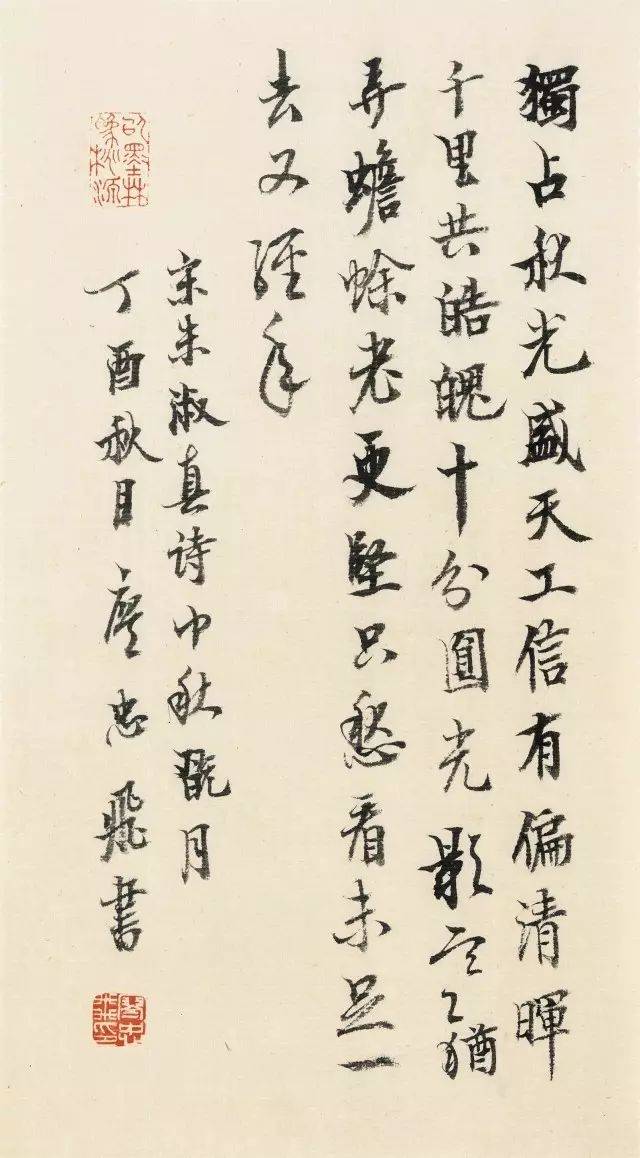 獨占秋光盛天工信有偏清暉
千里共皓魄十分圓光影猶
弄蟾蜍老更堅只愁看未足一
去又經年
宋朱淑真诗中秋翫月
丁酉秋日忠飛書